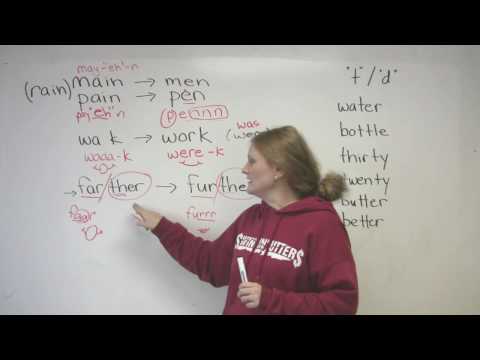 may-"eh"-n
(rain) main → men
pain → pen
"eh" n pennn
wa k → work was
waaa-k were-k
→ far/ther → fur/the
faar furrr
"t"/"d"
water
bottle
thirty
twenty
butter
better